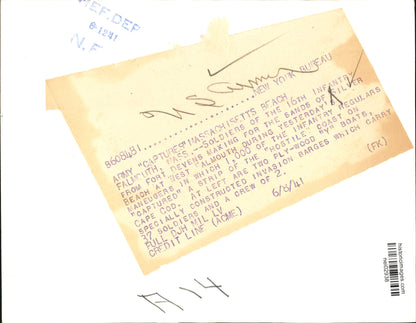 REF. DEP
6-1241
N. E
U S Army
8608491........................NEW YORK BUREAU
ARMY "CAPTURES" MASSACHUSETTS BEACH
FALMOUTH, MASS.--SOLDIERS OF THE 16TH INFANTRY
FROM FORT DEVENS MAKING FOR THE SANDS OF SILVER
BEACH AT WEST FALMOUTH DURING THE
MANEUVERS IN WHICH 1,500 OF THE INFANTRY REGULARS
"CAPTURED" A STRIP OF THE "HOSTILE" COAST ON
CAPE COD. AT LEFT ARE TWO PLY-WOOD "V" BOATS,
SPECIALLY CONSTRUCTED INVASION BARGES WHICH CARRY
37 SOLDIERS AND A CREW OF 2.
FULL DJH MIL LV 6/6/41 (FK)
CREDIT LINE (ACME)
A14
historicimages.com